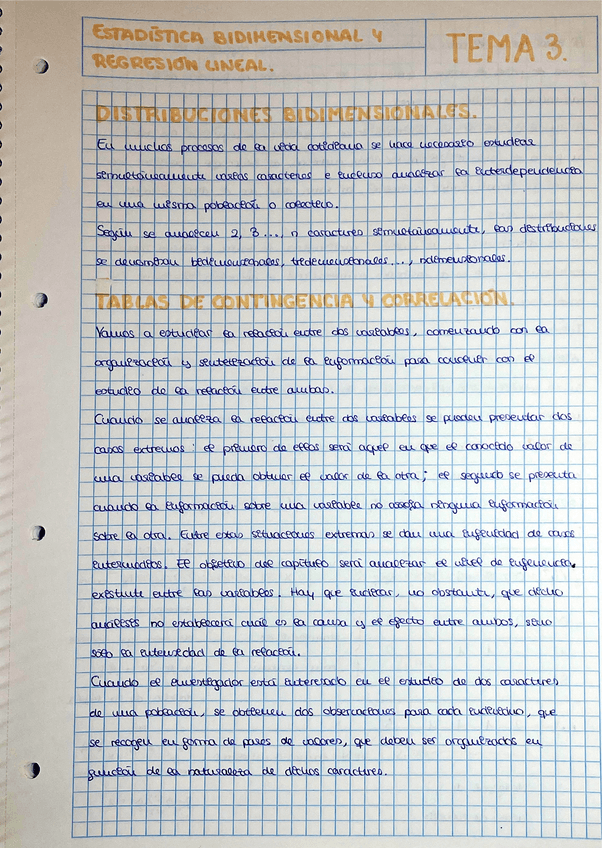 ESTADÍSTICA BIDIMENSIONAL Y
REGRESIÓN LINEAL.
TEMA 3.
DISTRIBUCIONES BIDIMENSIONALES.
En muchos procesos de la vida cotidiana se hace necesario estudiar
simultáneamente varios caracteres e incluso analizar la interdependencia
en una misma población o colectivo.
Según se analicen 2, 3..., n caracteres simultáneamente, las distribuciones
se denominan bidimensionales, tridimensionales..., ndimensionales.
TABLAS DE CONTINGENCIA Y CORRELACIÓN.
Vamos a estudiar la relación entre dos variables, comenzando con la
organización y sintetización de la información para concluir con el
estudio de la relación entre ambas.
Cuando se analiza la relación entre dos variables se pueden presentar dos
casos extremos: el primero de ellos será aquel en que el conocido valor de
una variable se pueda obtener el valor de la otra; el segundo se presenta
cuando la información sobre una variable no ninguna información
sobre la otra. Entre estas situaciones extremas se dan una infinidad de casos
intermedios. El objetivo del capítulo será analizar el nivel de influencia,
existente entre las variables. Hay que indicar, no obstante, que dicho
análisis no establecerá cuál es la causa y el efecto entre ambos, sino
sólo la intensidad de la relación.
Cuando el investigador está interesado en el estudio de dos caracteres,
de una población, se obtienen dos observaciones para cada individuo, que
se recogen en forma de pares de valores, que deben ser organizados en
función de la naturaleza de dichos caracteres.